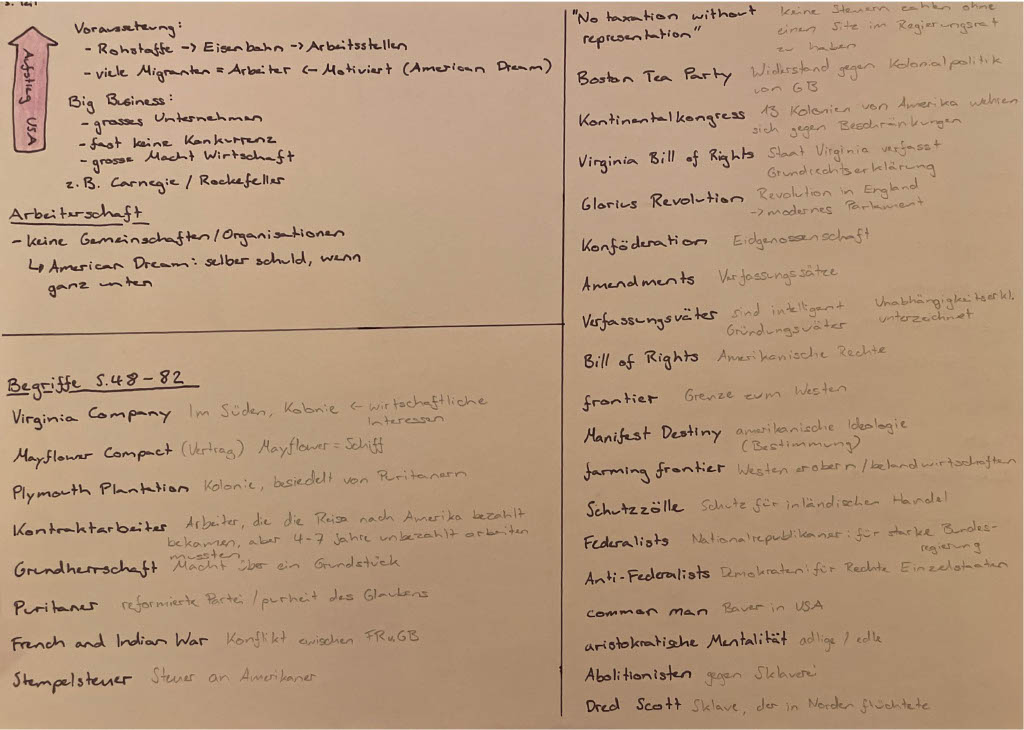 3. Teil
Aufstieg USA
Voraussetzung:
- Rohstoffe -> Eisenbahn -> Arbeitsstellen
- viele Migranten = Arbeiter <- Motiviert (American Dream)
Big Business:
- grosses Unternehmen
- fast keine Konkurrenz
- grosse Macht Wirtschaft
z.B. Carnegie / Rockefeller
Arbeiterschaft
- keine Gemeinschaften/Organisationen
↳ American Dream: selber schuld, wenn
ganz unten
Begriffe S.48-82
Virginia Company Im Süden, Kolonie <- wirtschaftliche
Interessen
Mayflower Compact (Vertrag) Mayflower = Schiff
Plymouth Plantation Kolonie, besiedelt von Puritanern
Kontraktarbeiter Arbeiter, die die Reise nach Amerika bezahlt
bekamen, aber 4-7 Jahre unbezahlt arbeiten
mussten
Grundherrschaft Macht über ein Grundstück
Puritaner reformierte Partei / purheit des Glaubens
French and Indian War Konflikt zwischen FR u GB
Stempelsteuer Steuer an Amerikaner
"No taxation without keine Steuern zahlen ohne
representation" einen Sitz im Regierungsrat
zu haben
Boston Tea Party Widerstand gegen Kolonialpolitik
von GB
Kontinentalkongress 13 Kolonien von Amerika wehren
sich gegen Beschränkungen
Virginia Bill of Rights Staat Virginia verfasst
Grundrechtserklärung
Glorius Revolution Revolution in England
-> modernes Parlament
Konföderation Eidgenossenschaft
Amendments Verfassungssätze
Verfassungsväter sind intelligent Unabhängigkeitserkl.
Gründungsväter unterzeichnet
Bill of Rights Amerikanische Rechte
frontier Grenze zum Westen
Manifest Destiny amerikanische Ideologie
(Bestimmung)
farming frontier Westen erobern / belandwirtschaften
Schutzzölle Schutz für inländischen Handel
Federalists Nationalrepublikaner: für starke Bundes-
regierung
Anti-Federalists Demokraten: für Rechte Einzelstaaten
common man Bauer in USA
aristokratische Mentalität adlige / edle
Abolitionisten gegen Sklaverei
Dred Scott Sklave, der in Norden flüchtete